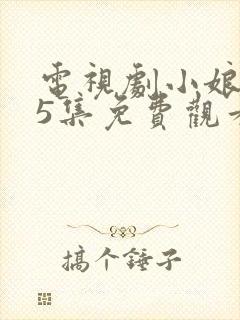 電視劇小娘
5集免費觀
搞个錘子